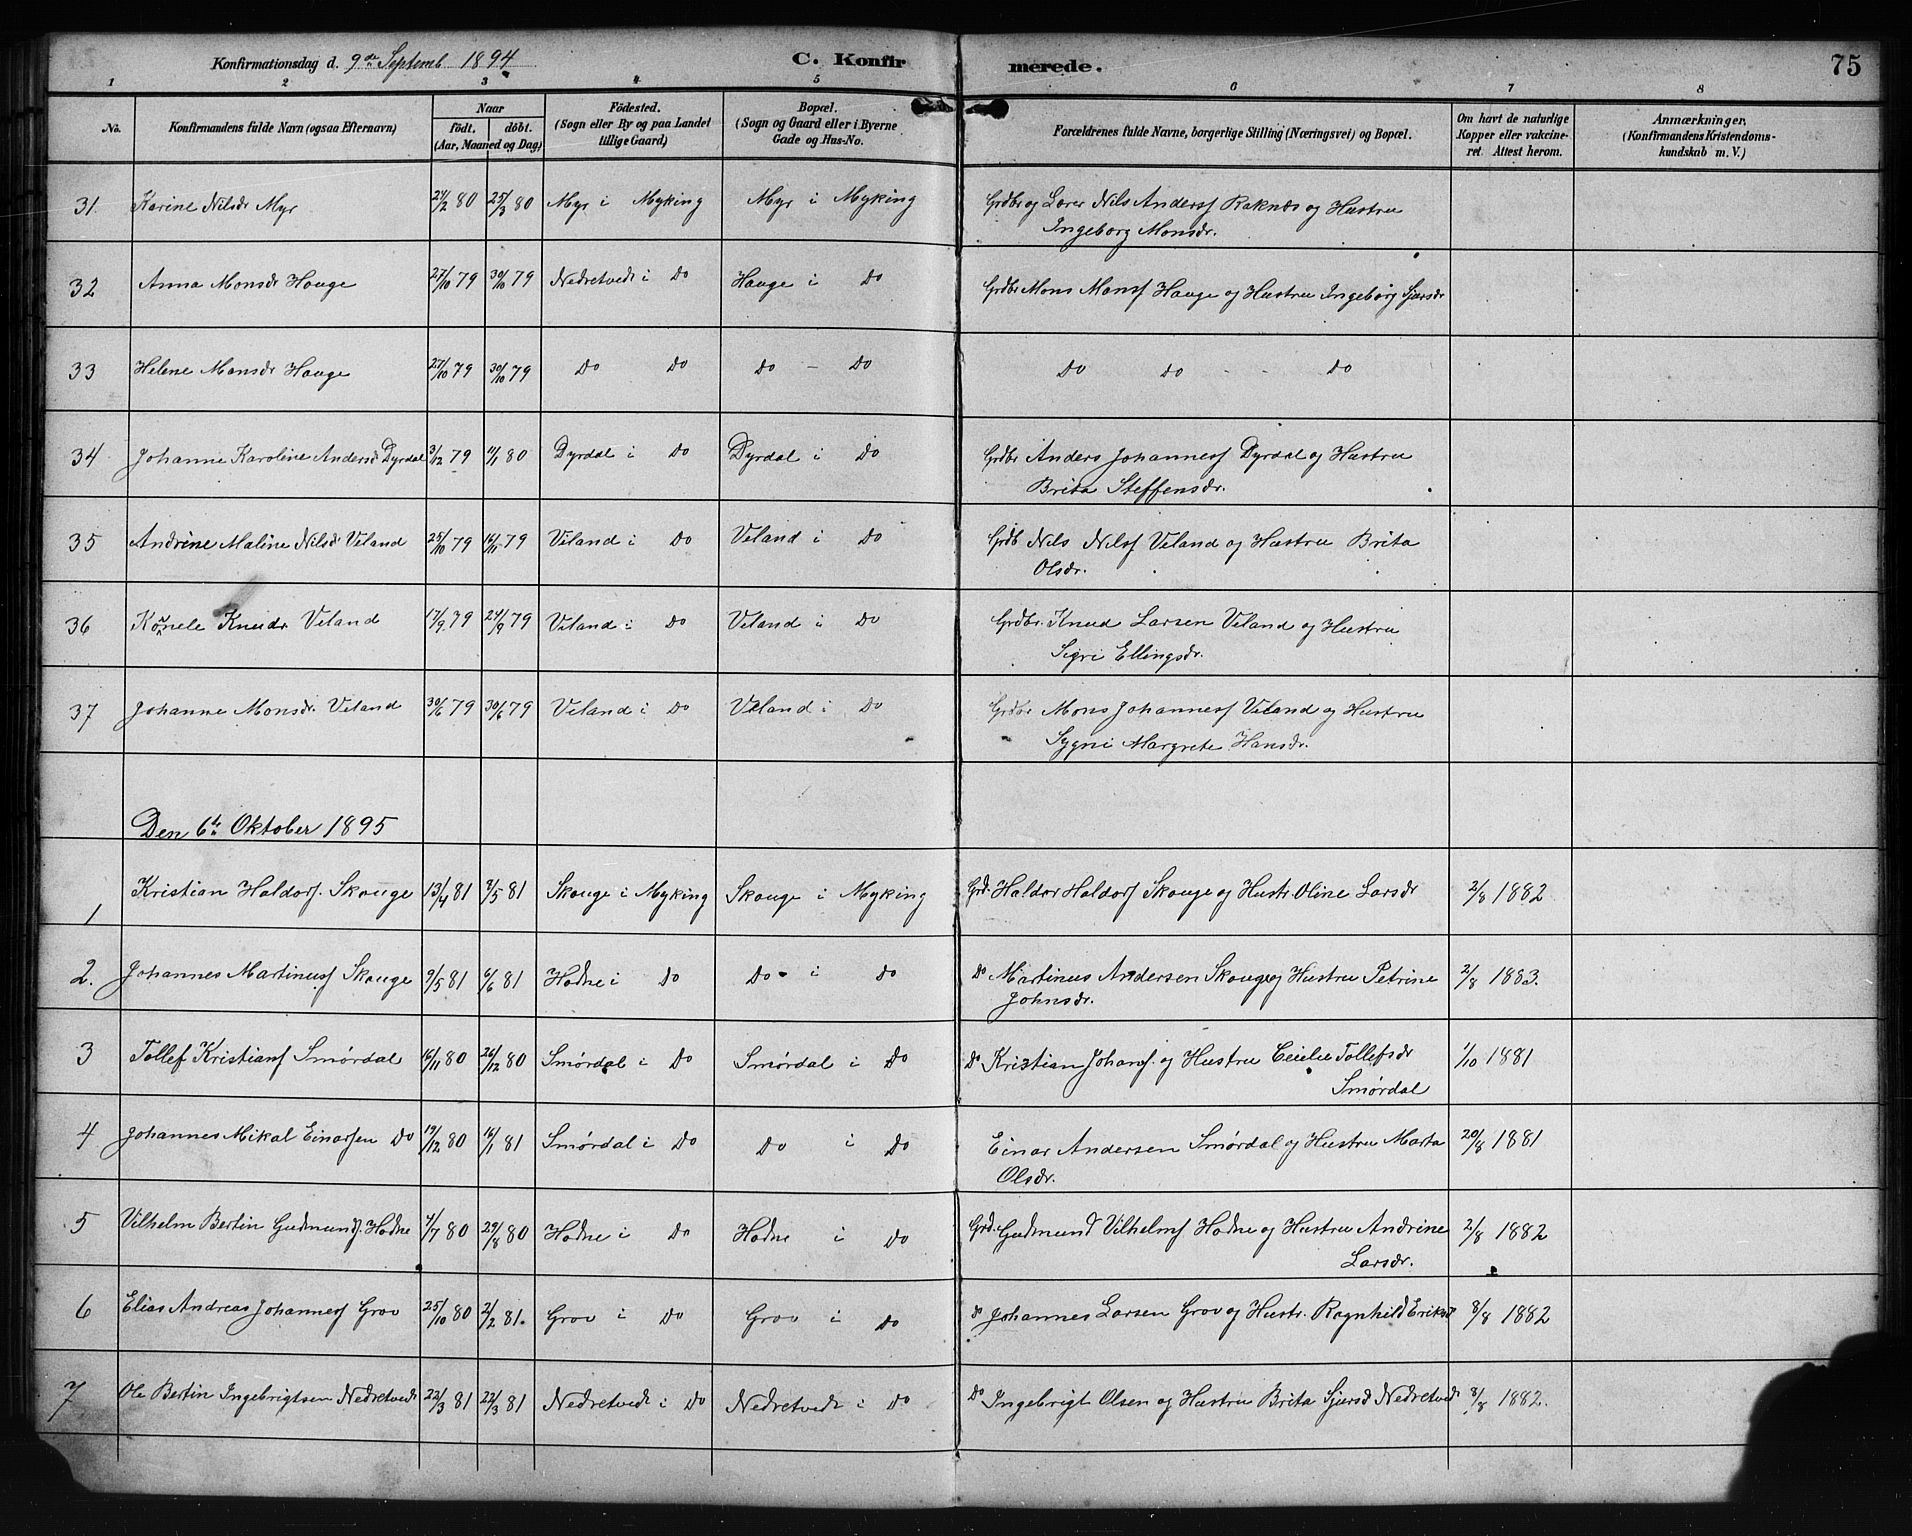 Konfirmationsdag d. 9de Septemb 1894 C. Konfirmerede. 75
1 2 3 4 5 6 7 8
No. Konfirmandens fulde Navn (ogsaa Efternavn) Naar födt, döbt. (Aar, Maaned og Dag) Födested. (Sogn eller By og paa Landet tillige Gaard) Bopæl. (Sogn og Gaard eller i Byerne Gade og Hus-No. Forældrenes fulde Navne, borgerlige Stilling (Næringsvei) og Bopæl. Om havt de naturlige Kopper eller vakcineret. Attest herom. Anmærkninger, (Konfirmandens Kristendomskundskab m. V.)
31 Karine Nilsdr Myr 24/2 80 25/3 80 Myr i Myking Myr i Myking Grdbr og Lærer Nils Anders Raknæs og Hustru
Ingeborg Monsdr.
32 Anna Monsdr Hauge 27/10 79 30/10 79 Nedretvedt i Do Hauge i Do Grdbr Mons Mons Hauge og Hustru Ingeborg Sjursdr
33 Helene Monsdr Hauge 27/10 79 30/10 79 Do Do Do - Do Do Do - - Do
34 Johanne Karoline Andersd Dyrdal 3/12 79 11/1 80 Dyrdal i Do Dyrdal i Do Grdbr Anders Johannes Dyrdal og Hustru
Brita Steffensdr.
35 Andrine Maline Nilsd Veland 25/10 79 16/11 79 Veland i Do Veland i Do Grdb Nils Nils Veland og Hustru Brita
Olsdr.
36 Knudr Veland 17/9 79 24/9 79 Veland i Do Veland i Do Grdbr. Knud Larsen Veland og Hustru
Sigri Ellingsdr.
37 Johanne Monsdr. Veland 30/6 79 30/6 79 Veland i Do Veland i Do Grdbr Mons Johannes Veland og Hustru
Sygni Margrete Hansdr.
Den 6te Oktober 1895
1 Kristian Haldors. Skauge 13/4 81 7/5 81 Skauge i Myking Skauge i Myking Grd. Haldor Haldors Skauge og Hustr Oline Larsdr 2/8 1882
2. Johannes Martinus Skauge 9/5 81 6/6 81 Hodne i Do Do i Do Do Martinus Andersen Skauge og Hustru Petrine 2/8 1883.
Johnsdr.
3 Tollef Kristians Smørdal 16/11 80 26/12 80 Smørdal i Do Smørdal i Do Do Kristian Johans. og Hustru Ceielie Tollefsdr 1/10 1881
Smørdal
4 Johannes Mikal Einarsen Do 19/12 80 16/1 81 Smørdal i Do Do i Do Einar Andersen Smørdal og Hustru Marta 20/8 1881
Olsdr.
5 Vilhelm Bertin Gudmunds. Hodne 4/7 80 29/8 80 Hodne i Do Hodne i Do Grd. Gudmund Vilhelms Hodne og Hustru Andrine 2/8 1882
Larsdr.
6 Elias Andreas Johannes Grov 25/10 80 2/2 81. Grov i Do Grov i Do Do Johannes Larsen Grov og Hustr. Ragnhild Eriksd 8/8 1882
7 Ole Bertin Ingebrigtsen Nedretvedt 22/3 81 22/3 81 Nedretvedt i Do Nedretvedt i Do Do Ingebrigt Olsen og Hustru Brita Sjursd Nedretved 8/8 1882.